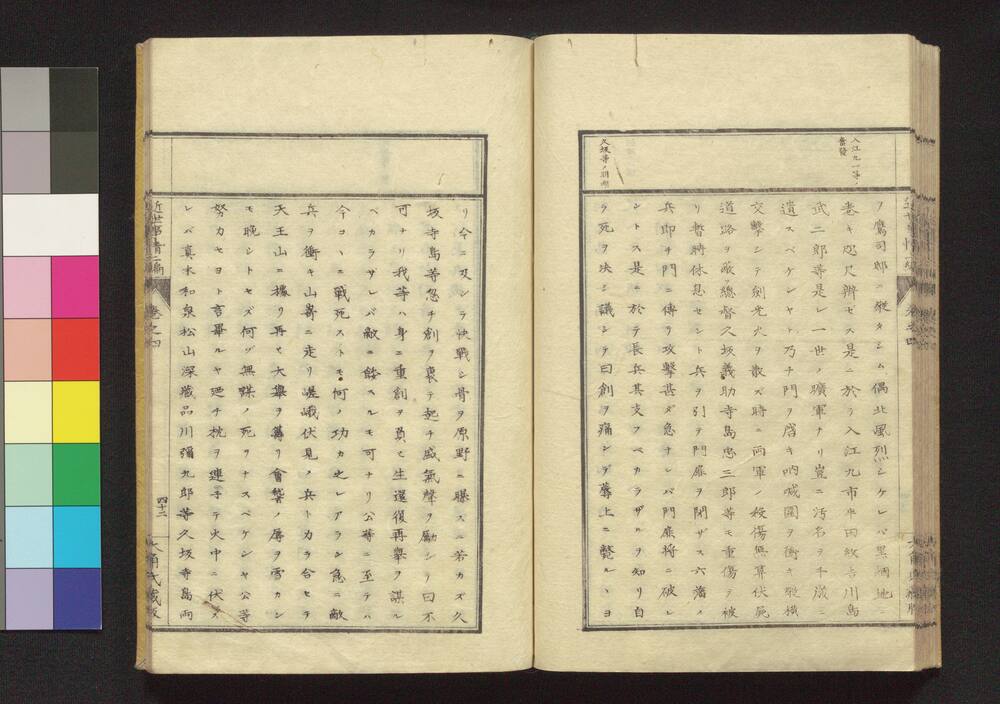 入江九一等ノ
奮發
ノ鷹司邸ニ縱タシム偶北風烈シケレバ黑烟地ニ
卷キ咫尺辨セス是ニ於テ入江九市平田 川島
武二郎等是レ一世ノ曠軍ナリ豈ニ汚名ヲ千歲ニ
遺スベケンヤト乃チ門ヲ啓キ吶喊圍ヲ衝キ殺
交擊シテ劍光火ヲ散ス時ニ兩軍ノ殺傷無算伏屍
道路ヲ蔽ヘ總督久坂義助寺島忠三郎等モ重傷ヲ被
リ暫時休息セント兵ヲ引テ門扉ヲ閉ザス六藩ノ
兵即チ門ニ傳リ攻擊甚ダ急ナレバ門扉將ニ破レ
ントス是ニ於テ長兵其支フベカラザルヲ知リ自
ラ死ヲ决シ議シテ曰創ヲ痛シデ蓐上ニ斃ルヽヨ
久坂等ノ
リ今ニ及ンテ快戰シ骨ヲ原野ニ曝スニ若カズ久
坂寺島等忽チ創ヲ裹テ起チ盛氣聲ヲ勵シテ曰不
可ナリ我等ハ身ニ重創ヲ負ヒ生還復再擧ヲ謀ル
ベカラザレバ敵ニ餘スルモ可ナリ公等ニ至テハ
今コヽニ戰死ストモ何ノ功カ之レアラン急ニ敵
兵ヲ衝キ山嵜ニ走リ嵯峨伏見ノ兵トカラ合セテ
天王山ニ據リ再ヒ大擧ヲ籌リ會誓ノ辱ヲ雪カン
モ晚シトセズ何ゾ無謀ノ死ヲナスベケンヤ公等
努カセヨト言畢ルヤ廼チ銃ヲ連子テ火中ニ伏ス
レバ真木和泉松山深藏品川彌九郎等久坂寺島兩
近世事情二編
卷之四
四十二